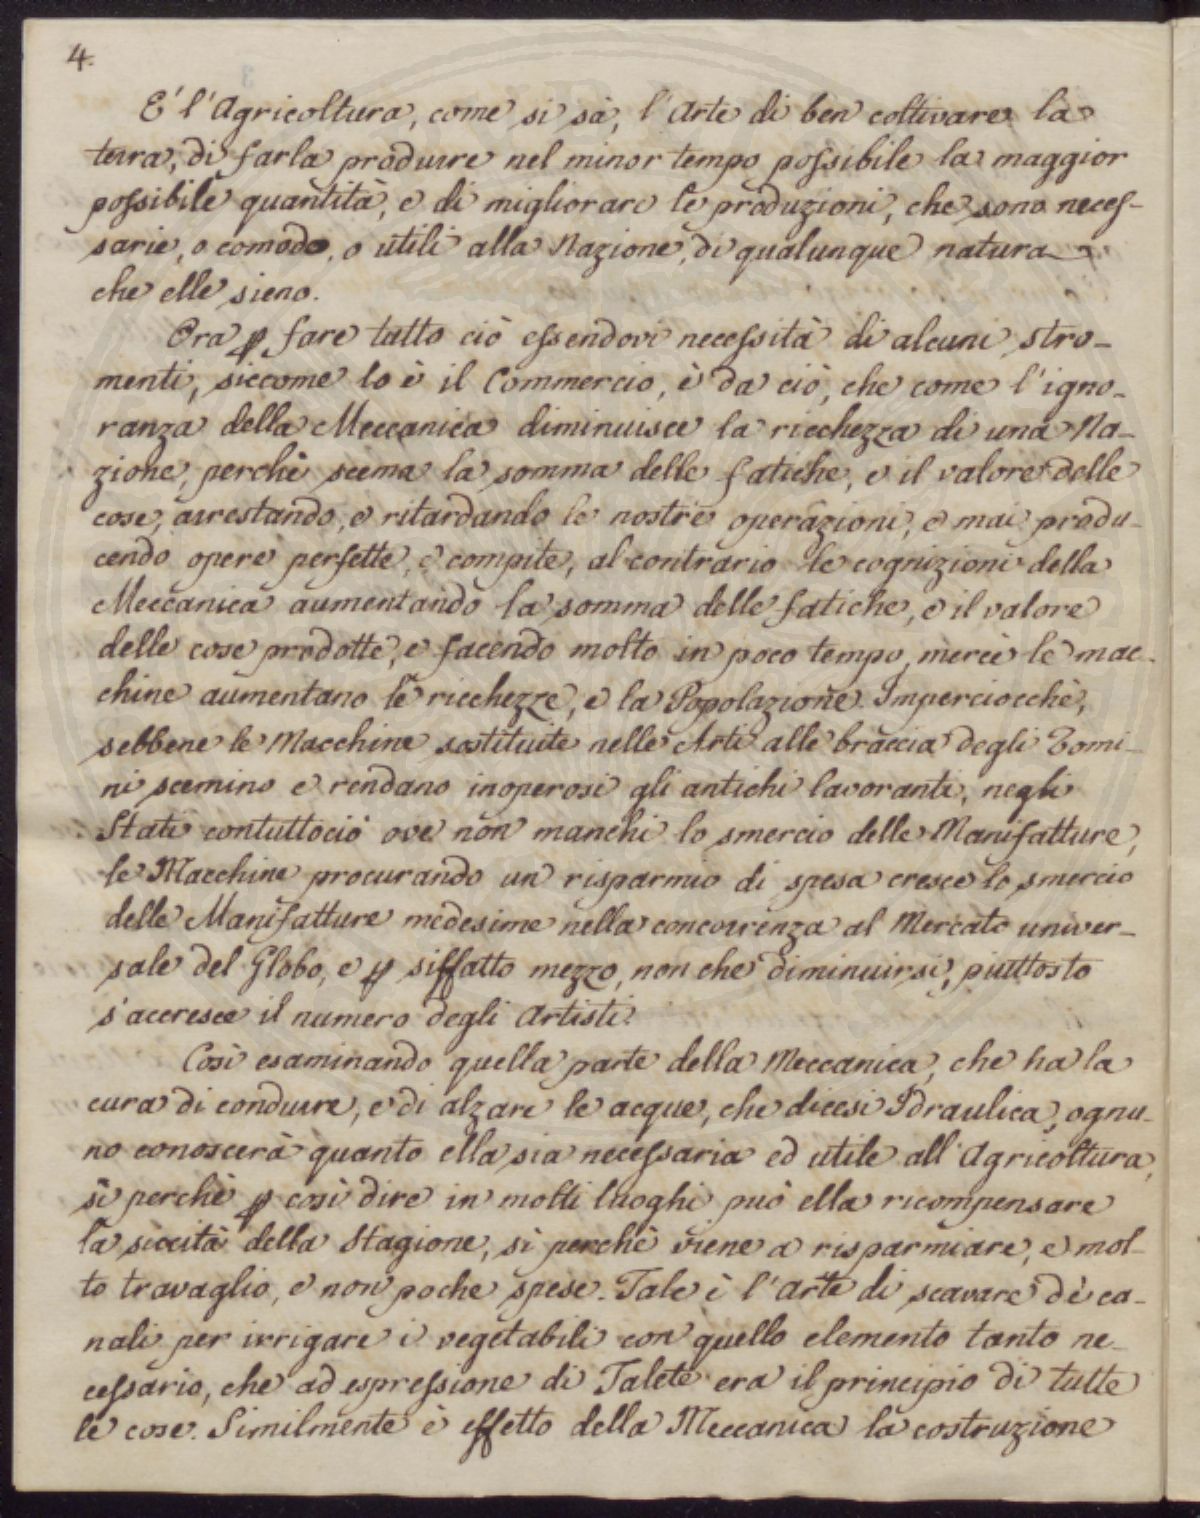 4.
E' l'Agricoltura, come si sà, l'Arte di ben coltivare la
terra, di farla produrre nel minor tempo possibile la maggior
possibile quantità, e di migliorare le produzioni, che sono neces-
sarie, o comode, o utili alla Nazione, di qualunque natura
che elle sieno.
Ora ꝑ fare tutto ciò essendovi necessità di alcuni stro-
menti, siccome lo è il Commercio, è da ciò, che come l'igno-
ranza della Meccanica diminuisce la ricchezza di una Na-
zione, perchè scema la somma delle fatiche, e il valore delle
cose, arrestando, e ritardando le nostre operazioni, e mai produ-
cendo opere perfette, e compite, al contrario le cognizioni della
Meccanica aumentando la somma delle fatiche, e il valore
delle cose prodotte, e facendo molto in poco tempo, mercè le mac-
chine aumentano le ricchezze, e la Popolazione. Imperciocchè,
sebbene le Macchine sostituite nelle Arti alle braccia degli Uomi-
ni scemino e rendano inoperosi gli antichi lavoranti, negli
Stati contuttociò ove non manchi lo smercio delle Manifatture,
le Macchine procurando un risparmio di spesa cresce lo smercio
delle Manifatture medesime nella concorrenza al Mercato univer-
sale del Globo, e ꝑ siffatto mezzo, non che diminuirsi, piuttosto
s'accresce il numero degli Artisti.
Così esaminando quella parte della Meccanica, che ha la
cura di condurre, e di alzare le acque, che dicesi Idraulica, ognu-
no conoscerà quanto ella sia necessaria ed utile all'Agricoltura,
sì perchè ꝑ così dire in molti luoghi può ella ricompensare
la siccità della Stagione, sì perchè viene a risparmiare, e mol-
to travaglio, e non poche spese. Tale è l'Arte di scavare dè ca-
nali per irrigare i vegetabili con quello elemento tanto ne-
cessario, che ad espressione di Talete era il principio di tutte
le cose. Similmente è effetto della Meccanica la costruzione